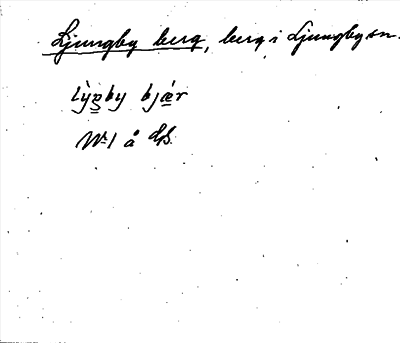 Ljungby berg, berg i Ljungby sn.
lỳŋby bjǽr
N:1 å